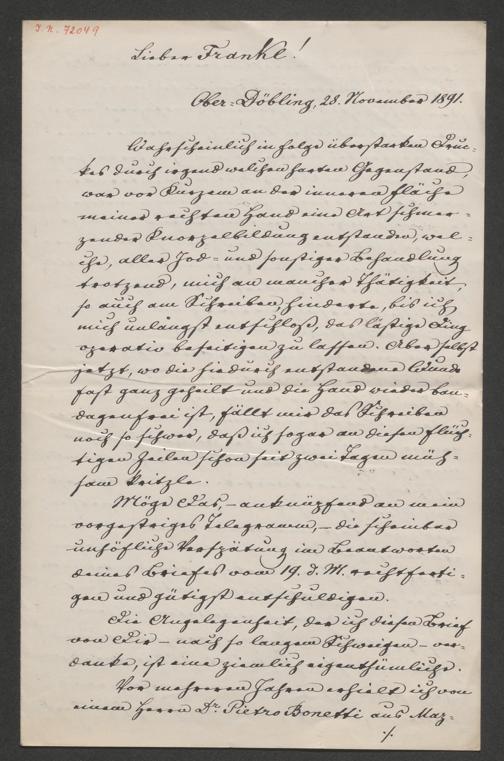 J. N. 72049
Lieber Frankl!
Ober-Döbling, 28. November 1891.
Wahrscheinlich in Folge überstarken Druc-
kes durch irgend welchen harten Gegenstand,
war vor Kurzem an der inneren Fläche
meiner rechten Hand eine Art schmer-
zender Knorpelbildung entstanden, wel-
che, aller Jod- und sonstiger Behandlung
trotzend, mich an mancher Thätigkeit,
so auch am Schreiben, hinderte, bis ich
mich unlängst entschloß, das lästige Ding
operativ beseitigen zu lassen. Aber selbst
jetzt, wo die hiedurch entstandene Wunde
fast ganz geheilt und die Hand wieder ban-
dagenfrei ist, fällt mir das Schreiben
noch so schwer, daß ich sogar an diesen flüch-
tigen Zeilen schon seit zwei Tagen müh-
sam kritzle.
Möge Das, – anknüpfend an mein
vorgestriges Telegramm, – die scheinbar
unhöfliche Verspätung im Beantworten
deines Briefes vom 19. d. M. rechtferti-
gen und gütigst entschuldigen.
Die Angelegenheit, der ich diesen Brief
von Dir – nach so langem Schweigen – ver-
danke, ist eine ziemlich eigenthümliche.
Vor mehreren Jahren erhielt ich von
einem Herrn Dr. Pietro Bonetti aus Maz-
./.